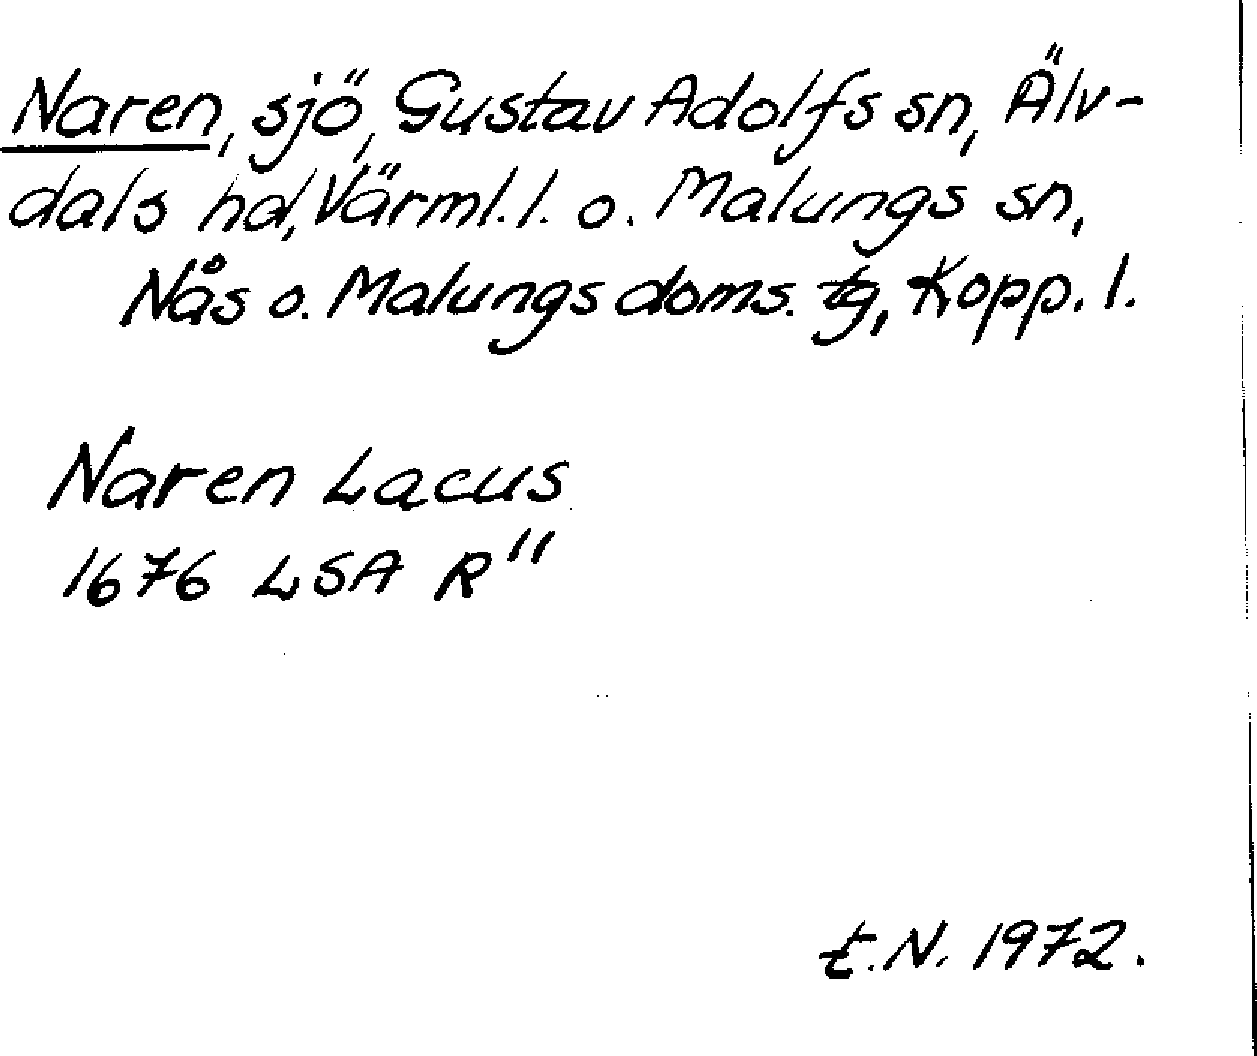 Naren, sjö, Gustav Adolfs sn, Älv-
dals hd, Värml. l. o. Malungs sn,
Nås o. Malungs doms. tg, Kopp. l.
Naren Lacus
1676 LSA R"
E.N. 1972.